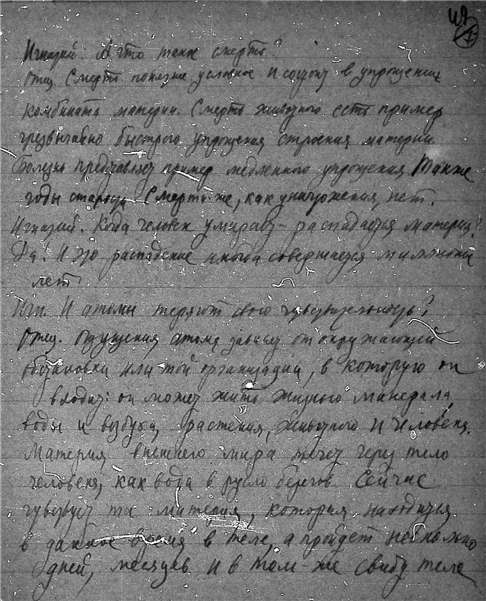 49
Игнатий. А что такое смерть?
Отец. Смерть понятие условное и состоит в упрощении
комбинации материи. Смерть животного есть пример
чрезвычайно быстрого упрощения строения материи
Болезнь представляет пример медленного упрощения Также
годы старости. Смерти же, как уничтожения, нет.
Игнатий. Когда человек умирает - распадается материя?
Да! И это распадение иногда совершается миллионы
лет.
Игн. И атомы теряют свою чувствительность?
Отец. Ощущения атома зависят от окружающей
обстановки или той организации, в которую он
входит: он может жить жизнью минерала,
воды и воздуха, растения, животного и человека.
Материя внешнего мира течет через тело
человека, как вода в русло берегов. Сейчас
чувствует та материя, которая находится
в данное время в теле, а пройдет несколько
дней, месяцев и в том-же теле